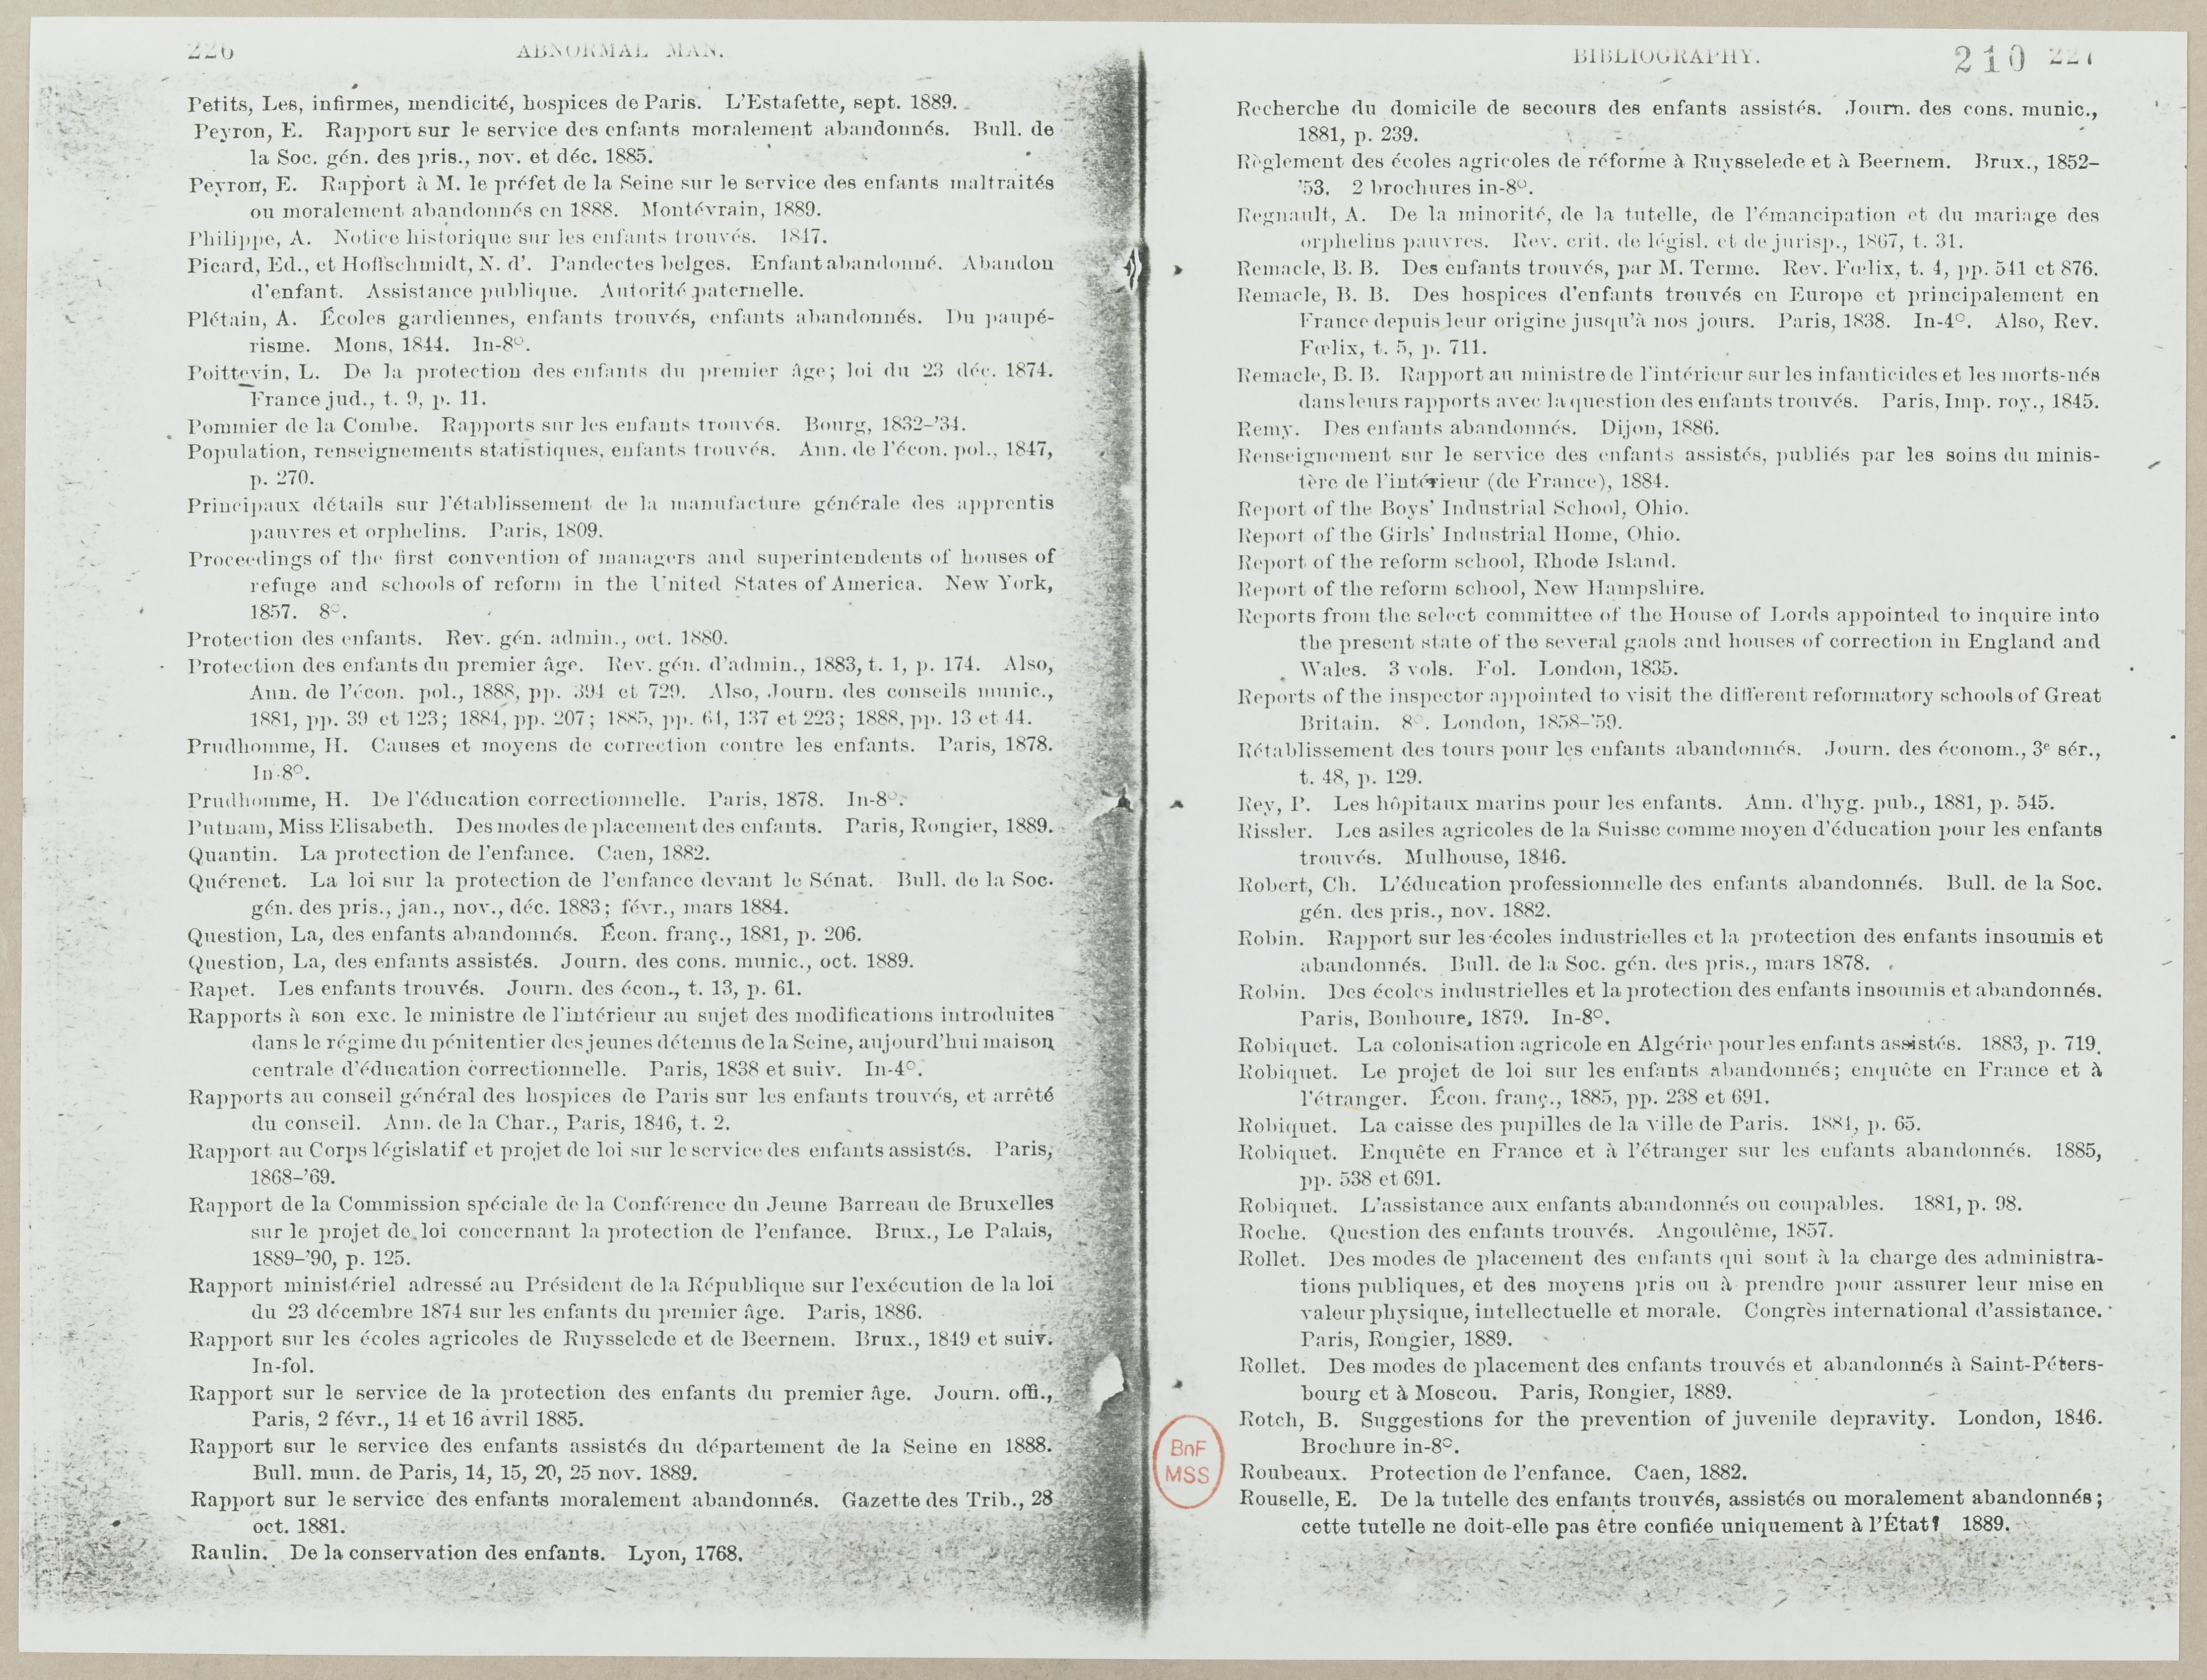 226 ABNORMAL MAN.
Petits, Les, infirmes, mendicité, hospices de Paris. L'Estafette, sept. 1889.
Peyron, E. Rapport sur le service des enfants moralement abandonnés. Bull. de
la Soc. gén. des pris., nov. et déc. 1885.
Peyron, E. Rapport à M. le préfet de la Seine sur le service des enfants maltraités
ou moralement abandonnés en 1888. Montévrain, 1889.
Philippe, A. Notice historique sur les enfants trouvés. 1847.
Picard, Ed., et Hoffschmidt, N. d'. Pandectes belges. Enfant abandonné. Abandon
d'enfant. Assistance publique. Autorité paternelle.
Plétain, A. Écoles gardiennes, enfants trouvés, enfants abandonnés. Du paupé-
risme. Mons, 1844. In-8°.
Poittevin, L. De la protection des enfants du premier âge; loi du 23 déc. 1874.
France jud., t. 9, p. 11.
Pommier de la Combe. Rapports sur les enfants trouvés. Bourg, 1832-'34.
Population, renseignements statistiques, enfants trouvés. Ann. de l'écon. pol., 1847,
p. 270.
Principaux détails sur l'établissement de la manufacture générale des apprentis
pauvres et orphelins. Paris, 1809.
Proceedings of the first convention of managers and superintendents of houses of
refuge and schools of reform in the United States of America. New York,
1857. 8°.
Protection des enfants. Rev. gén. admin., oct. 1880.
Protection des enfants du premier âge. Rev. gén. d'admin., 1883, t. 1, p. 174. Also,
Ann. de l'écon. pol., 1888, pp. 394 et 729. Also, Journ. des conseils munic.,
1881, pp. 39 et 123; 1884, pp. 207; 1885, pp. 61, 137 et 223; 1888, pp. 13 et 44.
Prudhomme, H. Causes et moyens de correction contre les enfants. Paris, 1878.
In-8°.
Prudhomme, H. De l'éducation correctionnelle. Paris, 1878. In-8°.
Putnam, Miss Elisabeth. Des modes de placement des enfants. Paris, Rongier, 1889.
Quantin. La protection de l'enfance. Caen, 1882.
Quérenet. La loi sur la protection de l'enfance devant le Sénat. Bull. de la Soc.
gén. des pris., jan., nov., déc. 1883; févr., mars 1884.
Question, La, des enfants abandonnés. Écon. franç., 1881, p. 206.
Question, La, des enfants assistés. Journ. des cons. munic., oct. 1889.
Rapet. Les enfants trouvés. Journ. des écon., t. 13, p. 61.
Rapports à son exc. le ministre de l'intérieur au sujet des modifications introduites
dans le régime du pénitentier des jeunes détenus de la Seine, aujourd'hui maison
centrale d'éducation correctionnelle. Paris, 1838 et suiv. In-4°.
Rapports au conseil général des hospices de Paris sur les enfants trouvés, et arrêté
du conseil. Ann. de la Char., Paris, 1846, t. 2.
Rapport au Corps législatif et projet de loi sur le service des enfants assistés. Paris,
1868-'69.
Rapport de la Commission spéciale de la Conférence du Jeune Barreau de Bruxelles
sur le projet de loi concernant la protection de l'enfance. Brux., Le Palais,
1889-'90, p. 125.
Rapport ministériel adressé au Président de la République sur l'exécution de la loi
du 23 décembre 1874 sur les enfants du premier âge. Paris, 1886.
Rapport sur les écoles agricoles de Ruysselede et de Beernem. Brux., 1849 et suiv.
In-fol.
Rapport sur le service de la protection des enfants du premier âge. Journ. offi.,
Paris, 2 févr., 14 et 16 avril 1885.
Rapport sur le service des enfants assistés du département de la Seine en 1888.
Bull. mun. de Paris, 14, 15, 20, 25 nov. 1889.
Rapport sur le service des enfants moralement abandonnés. Gazette des Trib., 28
oct. 1881.
Raulin. De la conservation des enfants. Lyon, 1768.
BIBLIOGRAPHY. 210 227
Recherche du domicile de secours des enfants assistés. Journ. des cons. munic.,
1881, p. 239.
Règlement des écoles agricoles de réforme à Ruysselede et à Beernem. Brux., 1852-
'53. 2 brochures in-8°.
Regnault, A. De la minorité, de la tutelle, de l'émancipation et du mariage des
orphelins pauvres. Rev. crit. de législ. et de jurisp., 1867, t. 31.
Remacle, B. B. Des enfants trouvés, par M. Terme. Rev. Fœlix, t. 4, pp. 541 et 876.
Remacle, B. B. Des hospices d'enfants trouvés en Europe et principalement en
France depuis leur origine jusqu'à nos jours. Paris, 1838. In-4°. Also, Rev.
Fœlix, t. 5, p. 711.
Remacle, B. B. Rapport au ministre de l'intérieur sur les infanticides et les morts-nés
dans leurs rapports avec la question des enfants trouvés. Paris, Imp. roy., 1845.
Remy. Des enfants abandonnés. Dijon, 1886.
Renseignement sur le service des enfants assistés, publiés par les soins du minis-
tère de l'intérieur (de France), 1884.
Report of the Boys' Industrial School, Ohio.
Report of the Girls' Industrial Home, Ohio.
Report of the reform school, Rhode Island.
Report of the reform school, New Hampshire.
Reports from the select committee of the House of Lords appointed to inquire into
the present state of the several gaols and houses of correction in England and
Wales. 3 vols. Fol. London, 1835.
Reports of the inspector appointed to visit the different reformatory schools of Great
Britain. 8°. London, 1858-'59.
Rétablissement des tours pour les enfants abandonnés. Journ. des économ., 3e sér.,
t. 48, p. 129.
Rey, P. Les hôpitaux marins pour les enfants. Ann. d'hyg. pub., 1881, p. 545.
Rissler. Les asiles agricoles de la Suisse comme moyen d'éducation pour les enfants
trouvés. Mulhouse, 1846.
Robert, Ch. L'éducation professionnelle des enfants abandonnés. Bull. de la Soc.
gén. des pris., nov. 1882.
Robin. Rapport sur les écoles industrielles et la protection des enfants insoumis et
abandonnés. Bull. de la Soc. gén. des pris., mars 1878.
Robin. Des écoles industrielles et la protection des enfants insoumis et abandonnés.
Paris, Bonhoure, 1879. In-8°.
Robiquet. La colonisation agricole en Algérie pour les enfants assistés. 1883, p. 719.
Robiquet. Le projet de loi sur les enfants abandonnés; enquête en France et à
l'étranger. Écon. franç., 1885, pp. 238 et 691.
Robiquet. La caisse des pupilles de la ville de Paris. 1884, p. 65.
Robiquet. Enquête en France et à l'étranger sur les enfants abandonnés. 1885,
pp. 538 et 691.
Robiquet. L'assistance aux enfants abandonnés ou coupables. 1881, p. 98.
Roche. Question des enfants trouvés. Angoulême, 1857.
Rollet. Des modes de placement des enfants qui sont à la charge des administra-
tions publiques, et des moyens pris ou à prendre pour assurer leur mise en
valeur physique, intellectuelle et morale. Congrès international d'assistance.
Paris, Rongier, 1889.
Rollet. Des modes de placement des enfants trouvés et abandonnés à Saint-Péters-
bourg et à Moscou. Paris, Rongier, 1889.
Rotch, B. Suggestions for the prevention of juvenile depravity. London, 1846.
Brochure in-8°.
Roubeaux. Protection de l'enfance. Caen, 1882.
Rouselle, E. De la tutelle des enfants trouvés, assistés ou moralement abandonnés;
cette tutelle ne doit-elle pas être confiée uniquement à l'État? 1889.
BnF
MSS